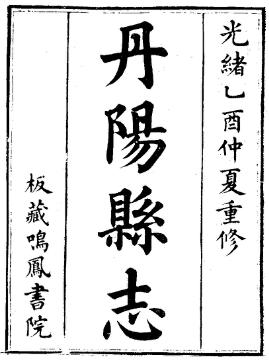 光緒乙酉仲夏重修
丹陽縣志
板藏鳴鳳書院